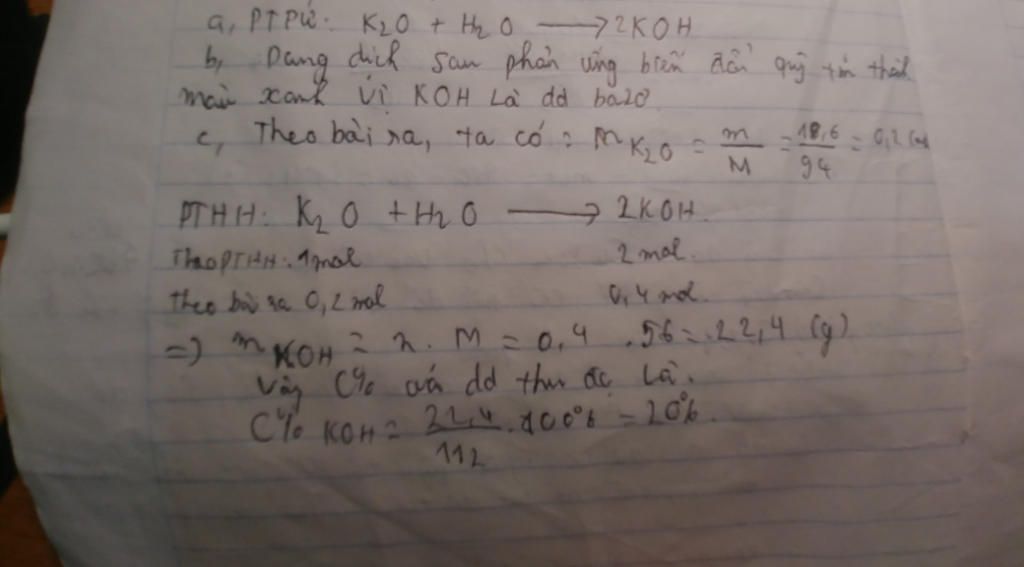 a, PTPứ: K₂O + H₂O ⟶ 2KOH
b, Dung dịch sau phản ứng biến đổi quỳ tím thành
màu xanh Vì KOH Là dd bazơ
c, Theo bài ra, ta có: m K₂O = m/M = 18,6/94 = 0,2
PTHH: K₂O + H₂O ⟶ 2KOH.
Theo PTHH: 1mol 2 mol.
Theo bài ra 0,2 mol 0,4 mol.
=> m KOH = n. M = 0,4 .56 = 22,4 (g)
Vậy C% của dd thu đc Là.
C% KOH = 22,4/112 . 100% = 20%.